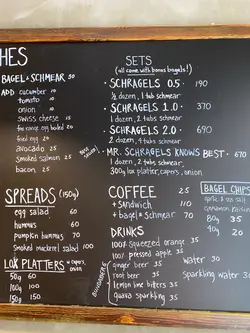 HES
BAGEL & SCHMEAR 50
ADD: cucumber 10
tomato 10
onion
swiss cheese 15
free range egg boiled 20
fried egg 20
avocado 25
smoked salmon 25
bacon 25
SPREADS (150g)
egg salad 60
hummus 60
pumpkin hummus 70
smoked mackerel salad 100
LOX PLATTERS + capers, onion
50g 60
100g 100
150g 150
SETS
(all come with bonus bagels!)
• SCHRAGELS 0.5 • 190
½ dozen, 1 tub schmear
• SCHRAGELS 1.0 • 370
1 dozen, 2 tubs schmear
• SCHRAGELS 2.0 • 690
2 dozen, 4 tubs schmear
• MR. SCHRAGELS KNOWS BEST • 670
1 dozen, 2 tubs schmear
300g lox platter, capers, onion
COFFEE 25
+ sandwich 110
+ bagel & schmear 70
DRINKS
100% squeezed orange 35
100% pressed apple 35
BUNDABERG
ginger beer 35
root beer 35
lemon lime bitters 35
guava sparkling 35
BAGEL CHIPS
garlic & sea salt
cinnamon raisin
80g 35
40g 20
water 30
sparkling water 3